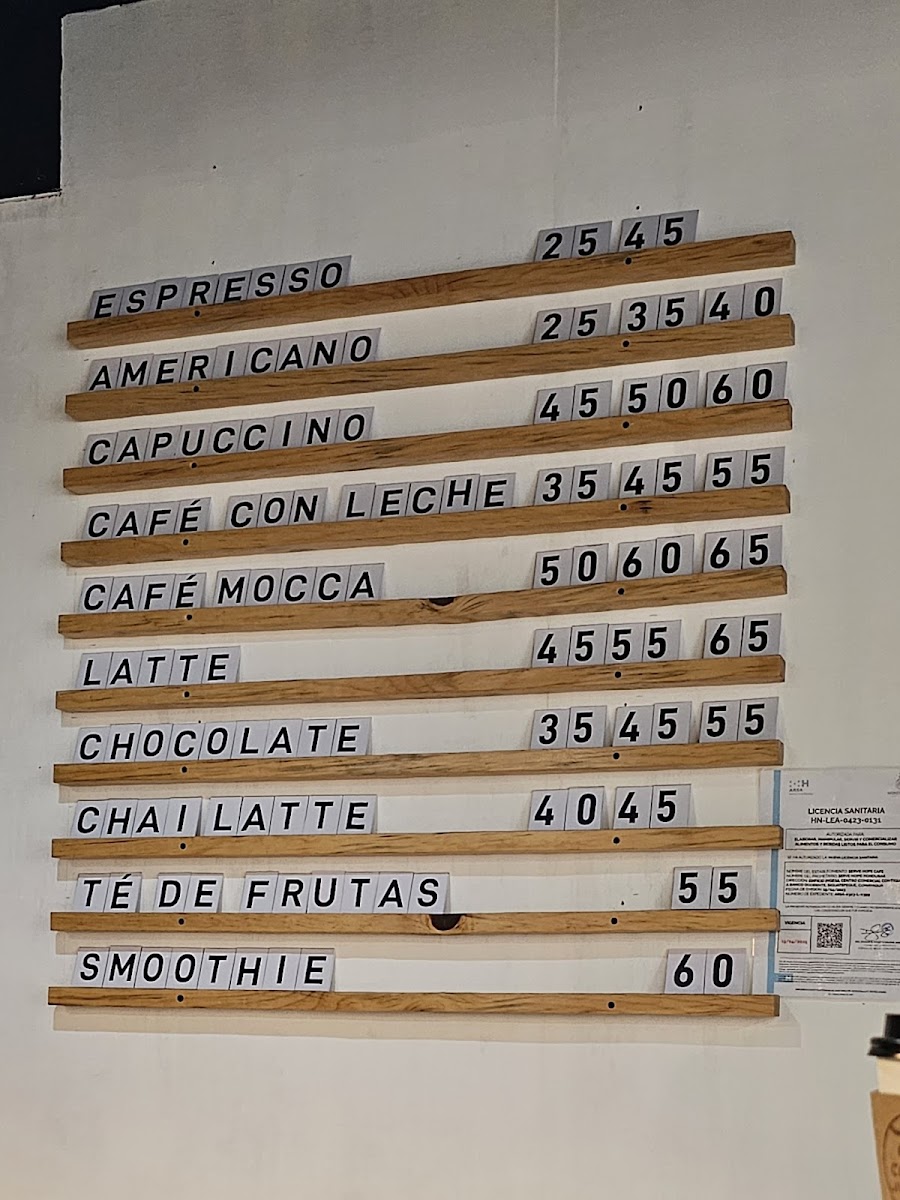 ESPRESSO 25 45
AMERICANO 25 35 40
CAPUCCINO 45 50 60
CAFÉ CON LECHE 35 45 55
CAFÉ MOCCA 50 60 65
LATTE 45 55 65
CHOCOLATE 35 45 55
CHAI LATTE 40 45
TÉ DE FRUTAS 55
SMOOTHIE 60
LICENCIA SANITARIA
HN-LEA-0423-0131
AUTORIZADA PARA
ELABORAR, MANIPULAR, SERVIR Y COMERCIALIZAR
ALIMENTOS Y BEBIDAS LISTOS PARA EL CONSUMO
VIGENCIA